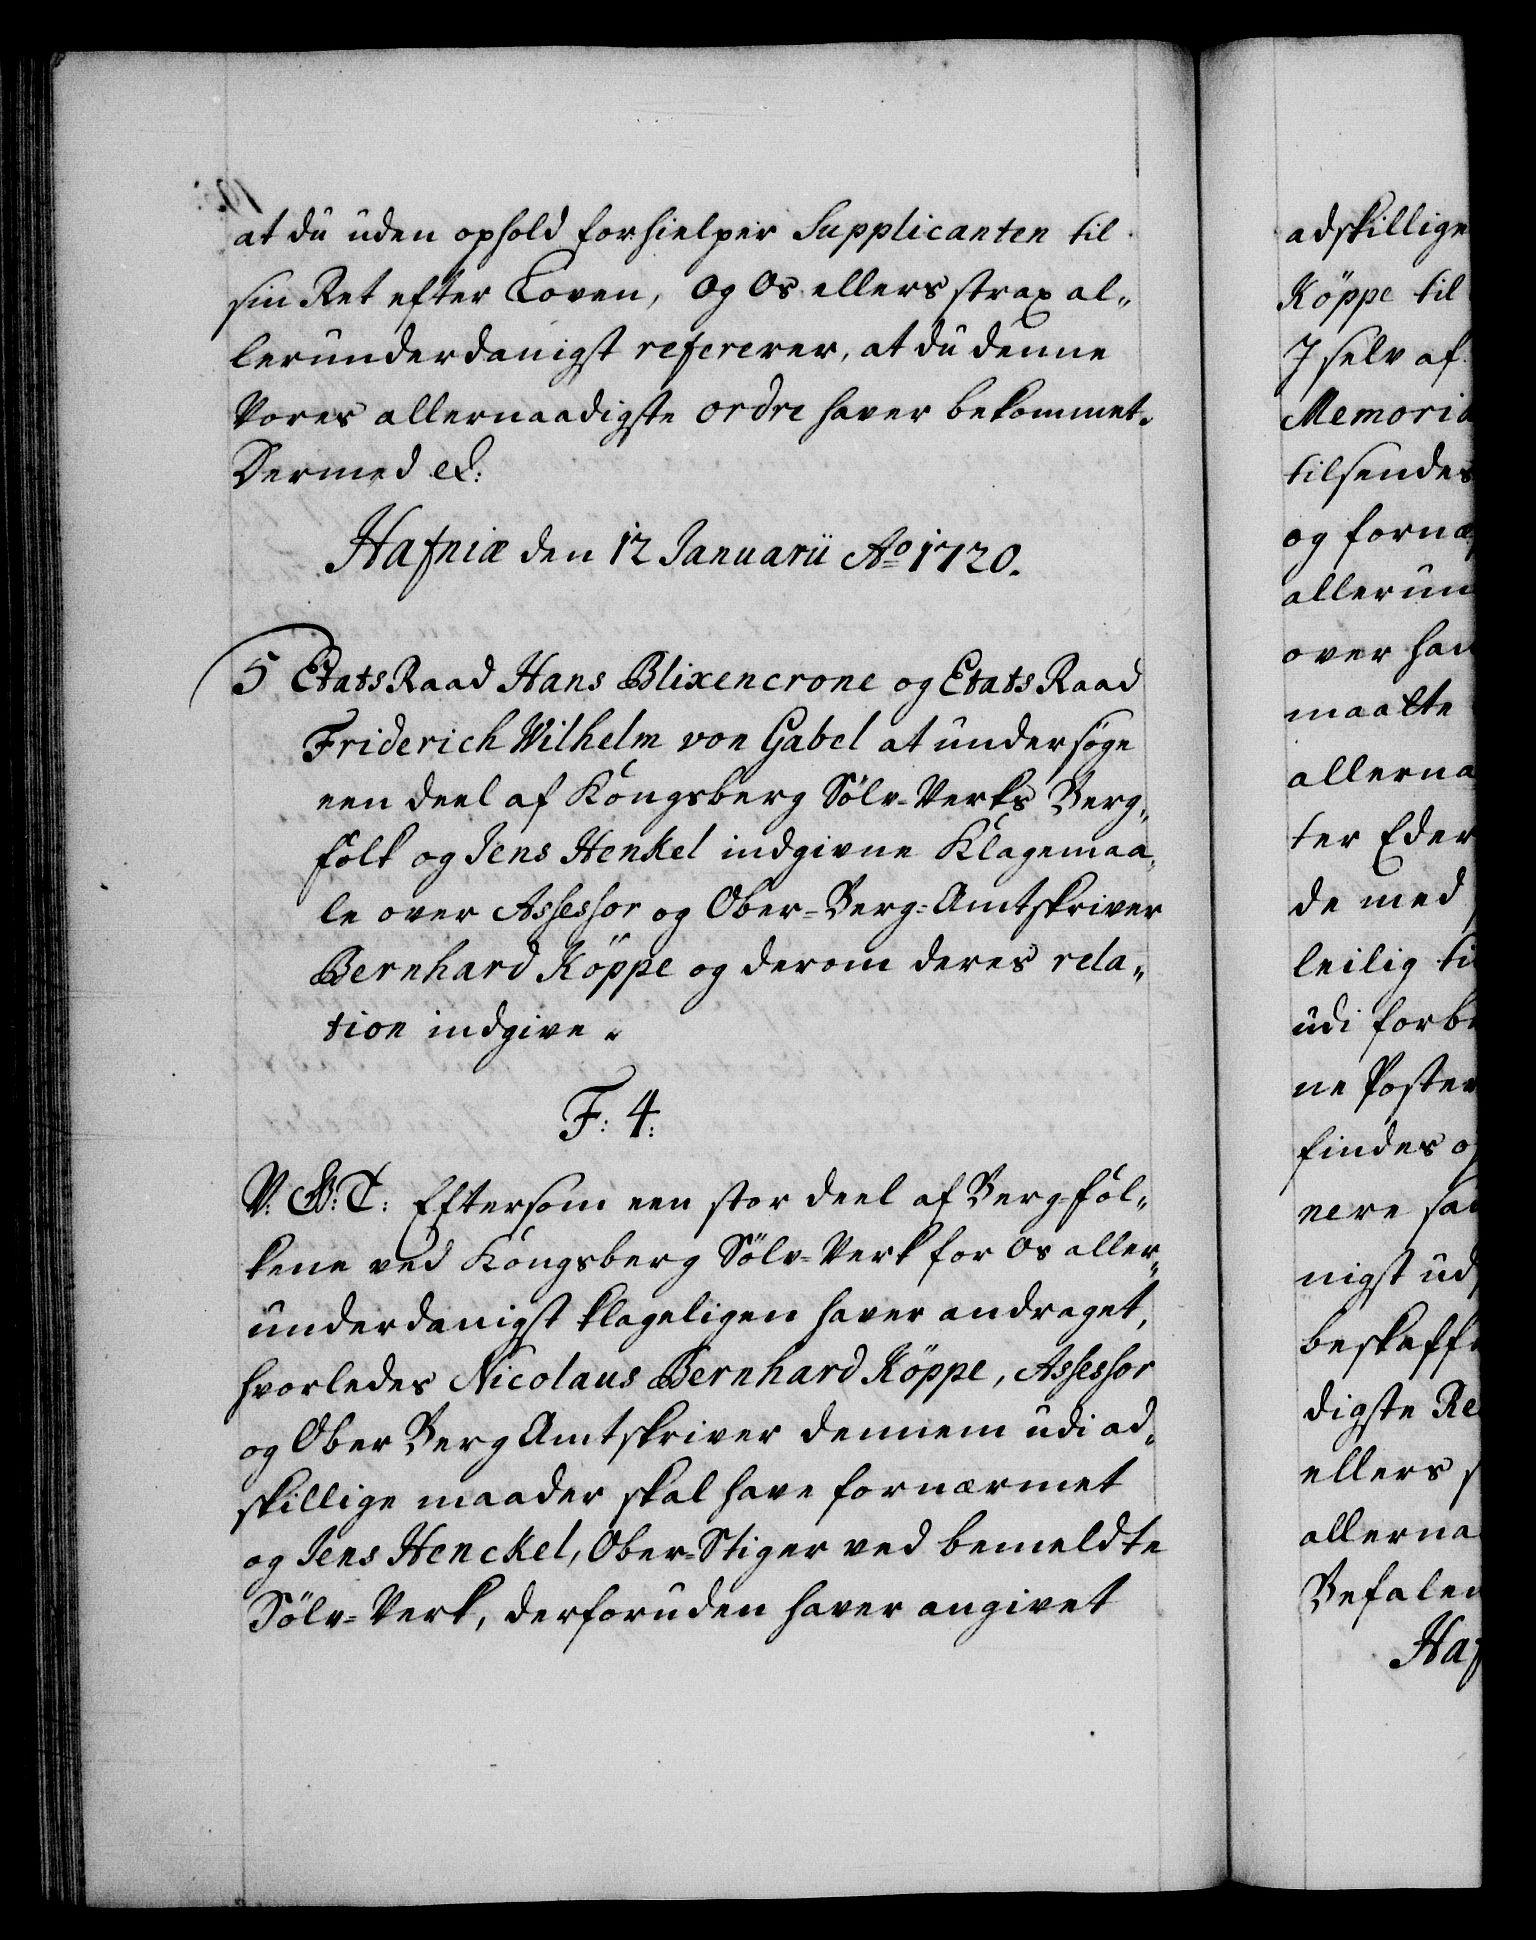 at du uden ophold forhielper Supplicanten til
sin Ret efter Loven, og Os ellers strax al„
lerunderdanigst refererer, at du denne
Vores allernaadigste ordre haver bekommet.
Dermed etc:
Hafniæ den 12 Januarii Ao 1720.
5 Etats Raad Hans Blixencrone og Etats Raad
Friderich Wilhelm von Gabel at undersøge
een deel af Kongsberg Sölv-Verks Berg„
folk og Jens Henkel indgivne Klagemaa„
le over Assessor og Ober-Berg-Amtskriver
Bernhard Köppe og derom deres rela„
tion indgive.
F: 4:
V: G: T: Eftersom een stor deel af Berg-fol„
kene ved Kongsberg Sölv-Verk for Os aller„
underdanigst klageligen haver andraget,
hvorledes Nicolaus Bernhard Köppe, Assessor
og Ober Berg Amtskriver dennem udi ad„
skillige maader skal have fornærmet
og Jens Henckel, Ober-Stiger ved bemeldte
Sölv-Verk, derforuden haver angivet
adskillige
Köppe til
I selv af
Memoria
tilsendes
og fornø
allerun
over han
maatte
allerna
ter Eder
de med
leilig ti
udi forbe
ne Poster
findes o
nere sa
nigst ud
beskaffe
digste Re
ellers s
allerna
Befalen
Haf